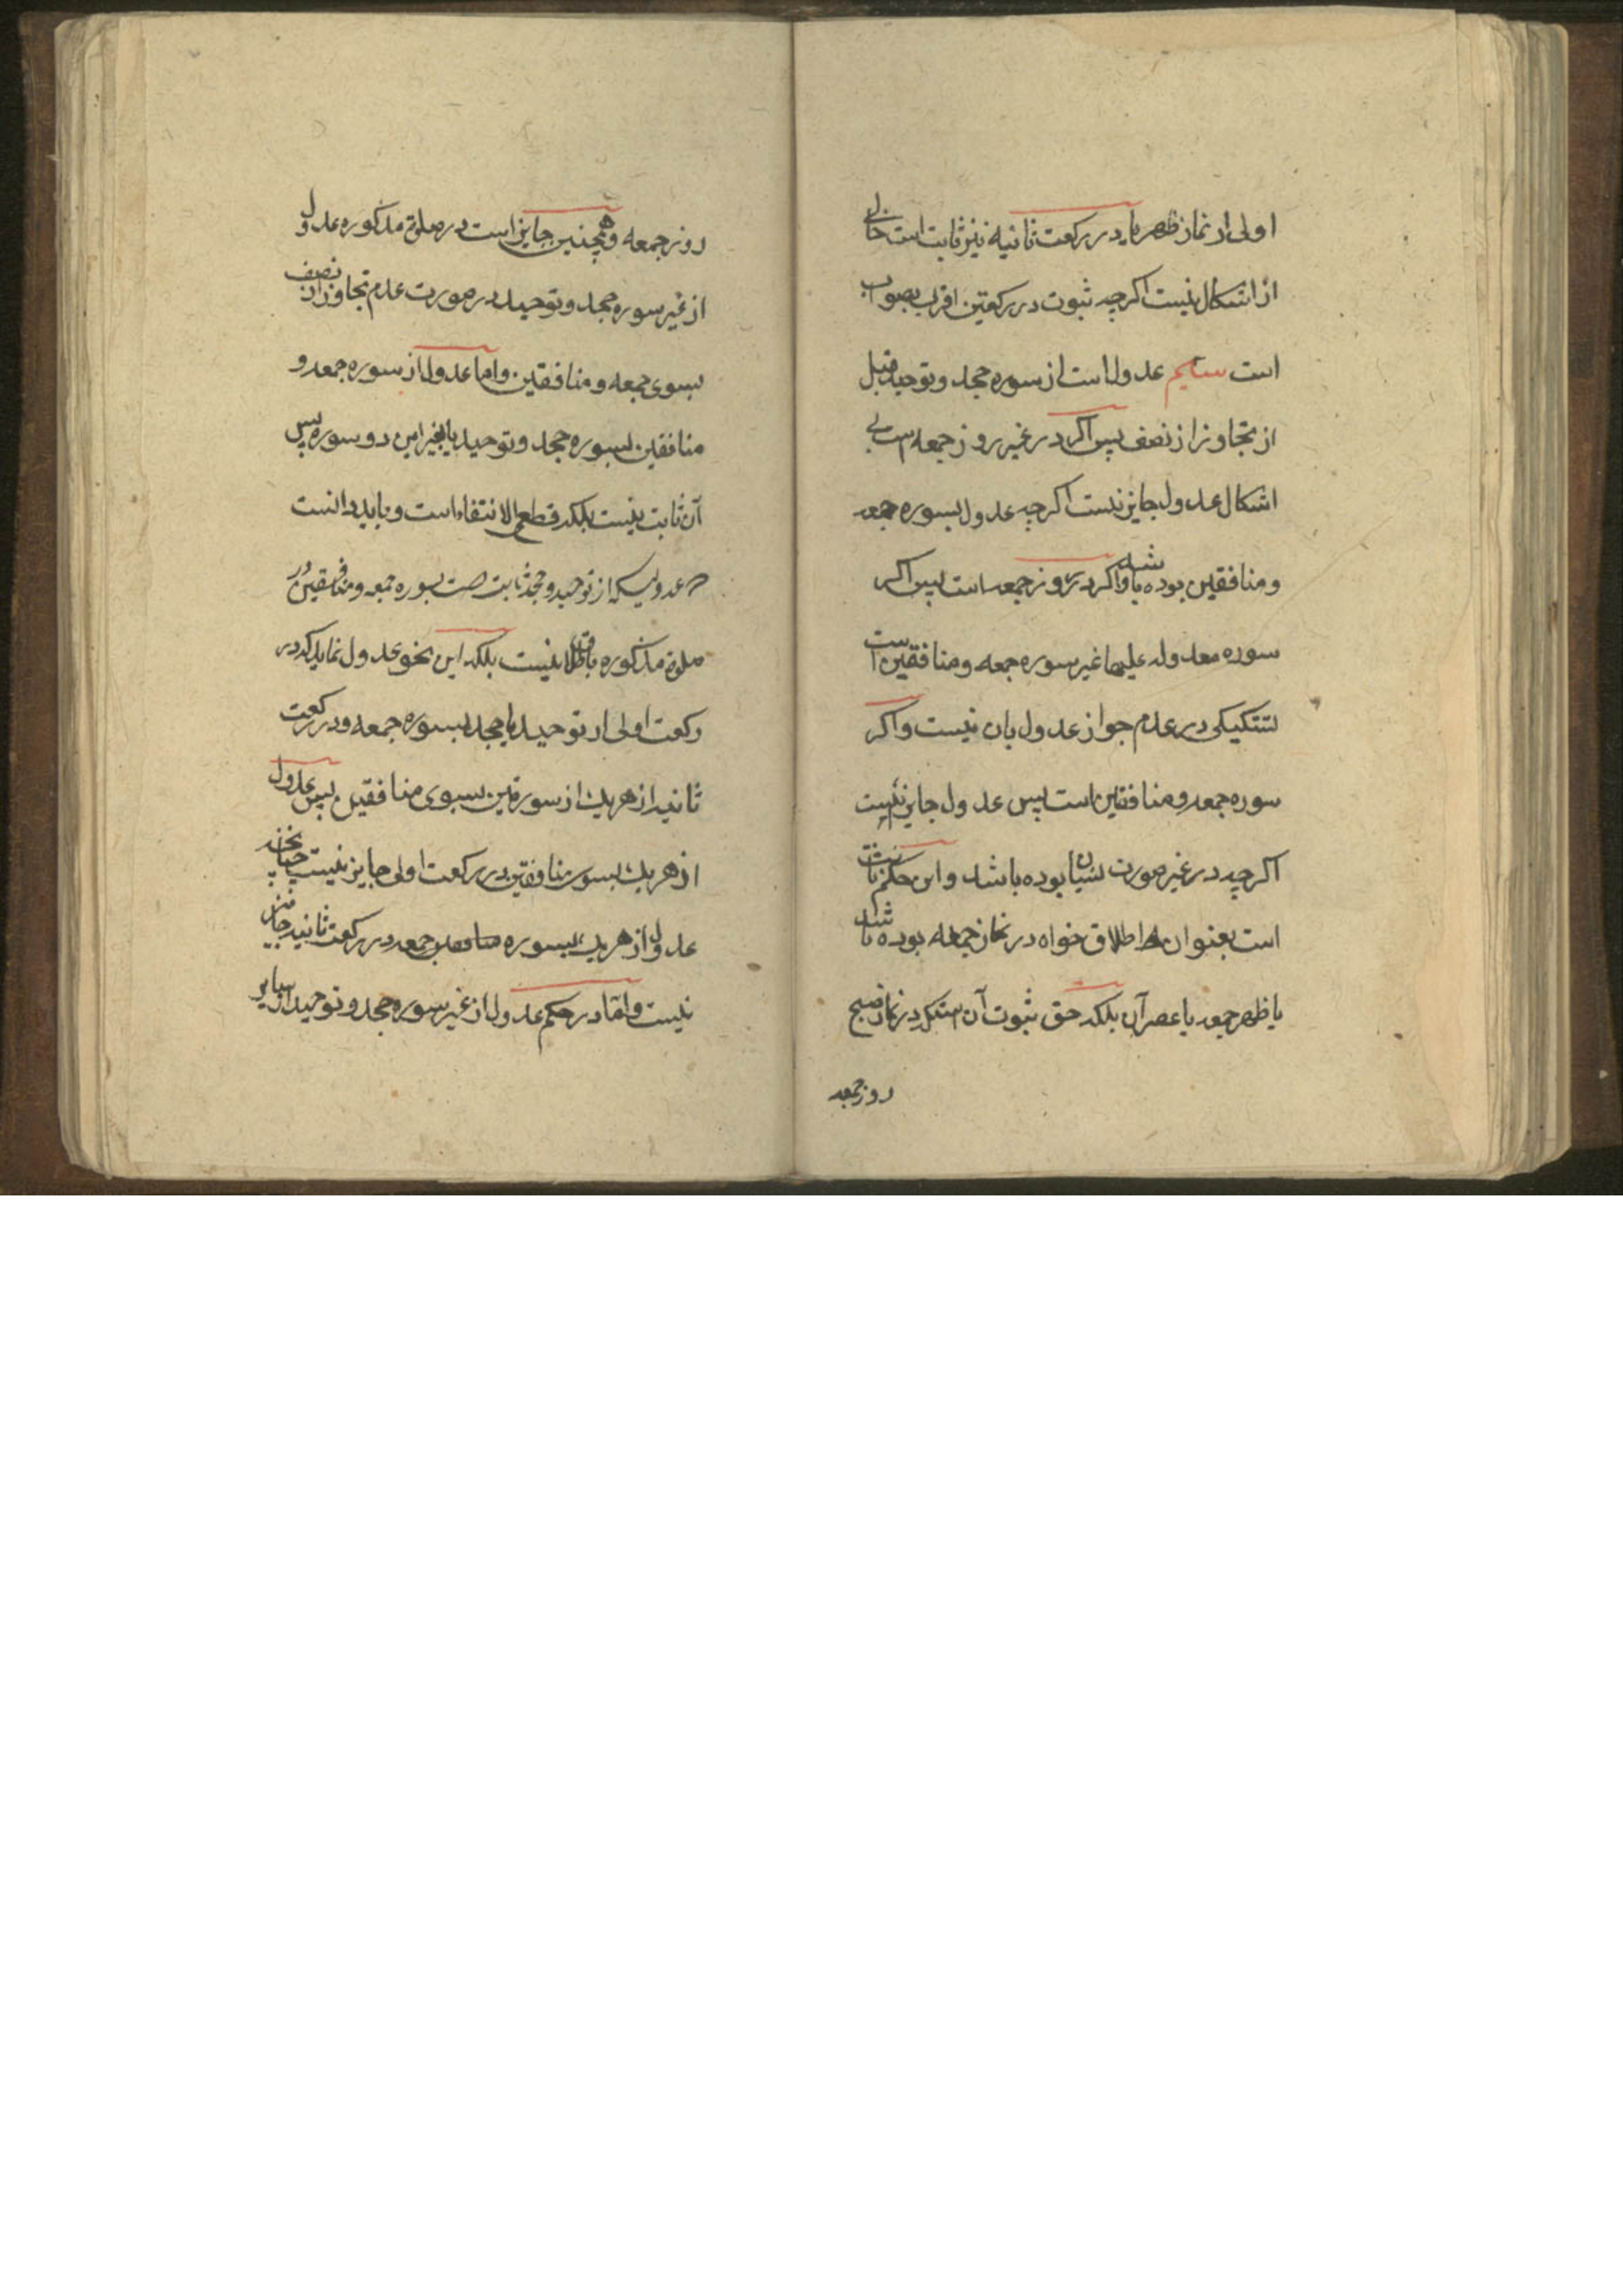 اولی از نماز ظهر یا در رکعت ثانیه نیز ثابت است خالی
از اشکال نیست اکرچه ثبوت در رکعتین اقرب بصواب
است سیم عدول است از سوره جحد و توحید قبل
از تجاوز از نصف پس اکر در غیر روز جمعه است بی
اشکال عدول جایز نیست اکرچه عدول بسوره جمعه
و منافقین بوده باشد و اکر در روز جمعه است پس اکر
سوره معدوله علیها غیر سوره جمعه و منافقین است
تشکیکی در عدم جواز عدول بان نیست و اکر
سوره جمعه و منافقین است پس عدول جایز است
اکرچه در غیر صورت نسیان بوده باشد و این حکم ثابت
است بعنوان اطلاق خواه در نماز جمعه بوده باشد
یا ظهر جمعه یا عصر آن بلکه حق ثبوت آن است در نماز صبح
روز جمعه
روز جمعه و همچنین جایز است در صلوة مذکوره عدول
از غیر سوره جحد و توحید در صورت عدم تجاوز از نصف
بسوی جمعه و منافقین و اما عدول از سوره جمعه و
منافقین بسوره جحد و توحید یا بغیر این دو سوره پس
آن ثابت نیست بلکه قطعی الانتفاء است و باید دانست
عدولیکه از توحید و جحد ثابت است بسوره جمعه و منافقین در
صلوة مذکوره باطلاق نیست بلکه این نحو عدول نماید که در
رکعت اولی از توحید یا جحد بسوره جمعه و در رکعت
ثانیه از هر یک از سورتین بسوی منافقین پس عدول
از هر یک بسوره منافقین در رکعت اولی جایز نیست چنانچه
عدول از هر یک بسوره جمعه در رکعت ثانیه جایز
نیست و اما در حکم عدول از غیر سوره جحد و توحید از سایر